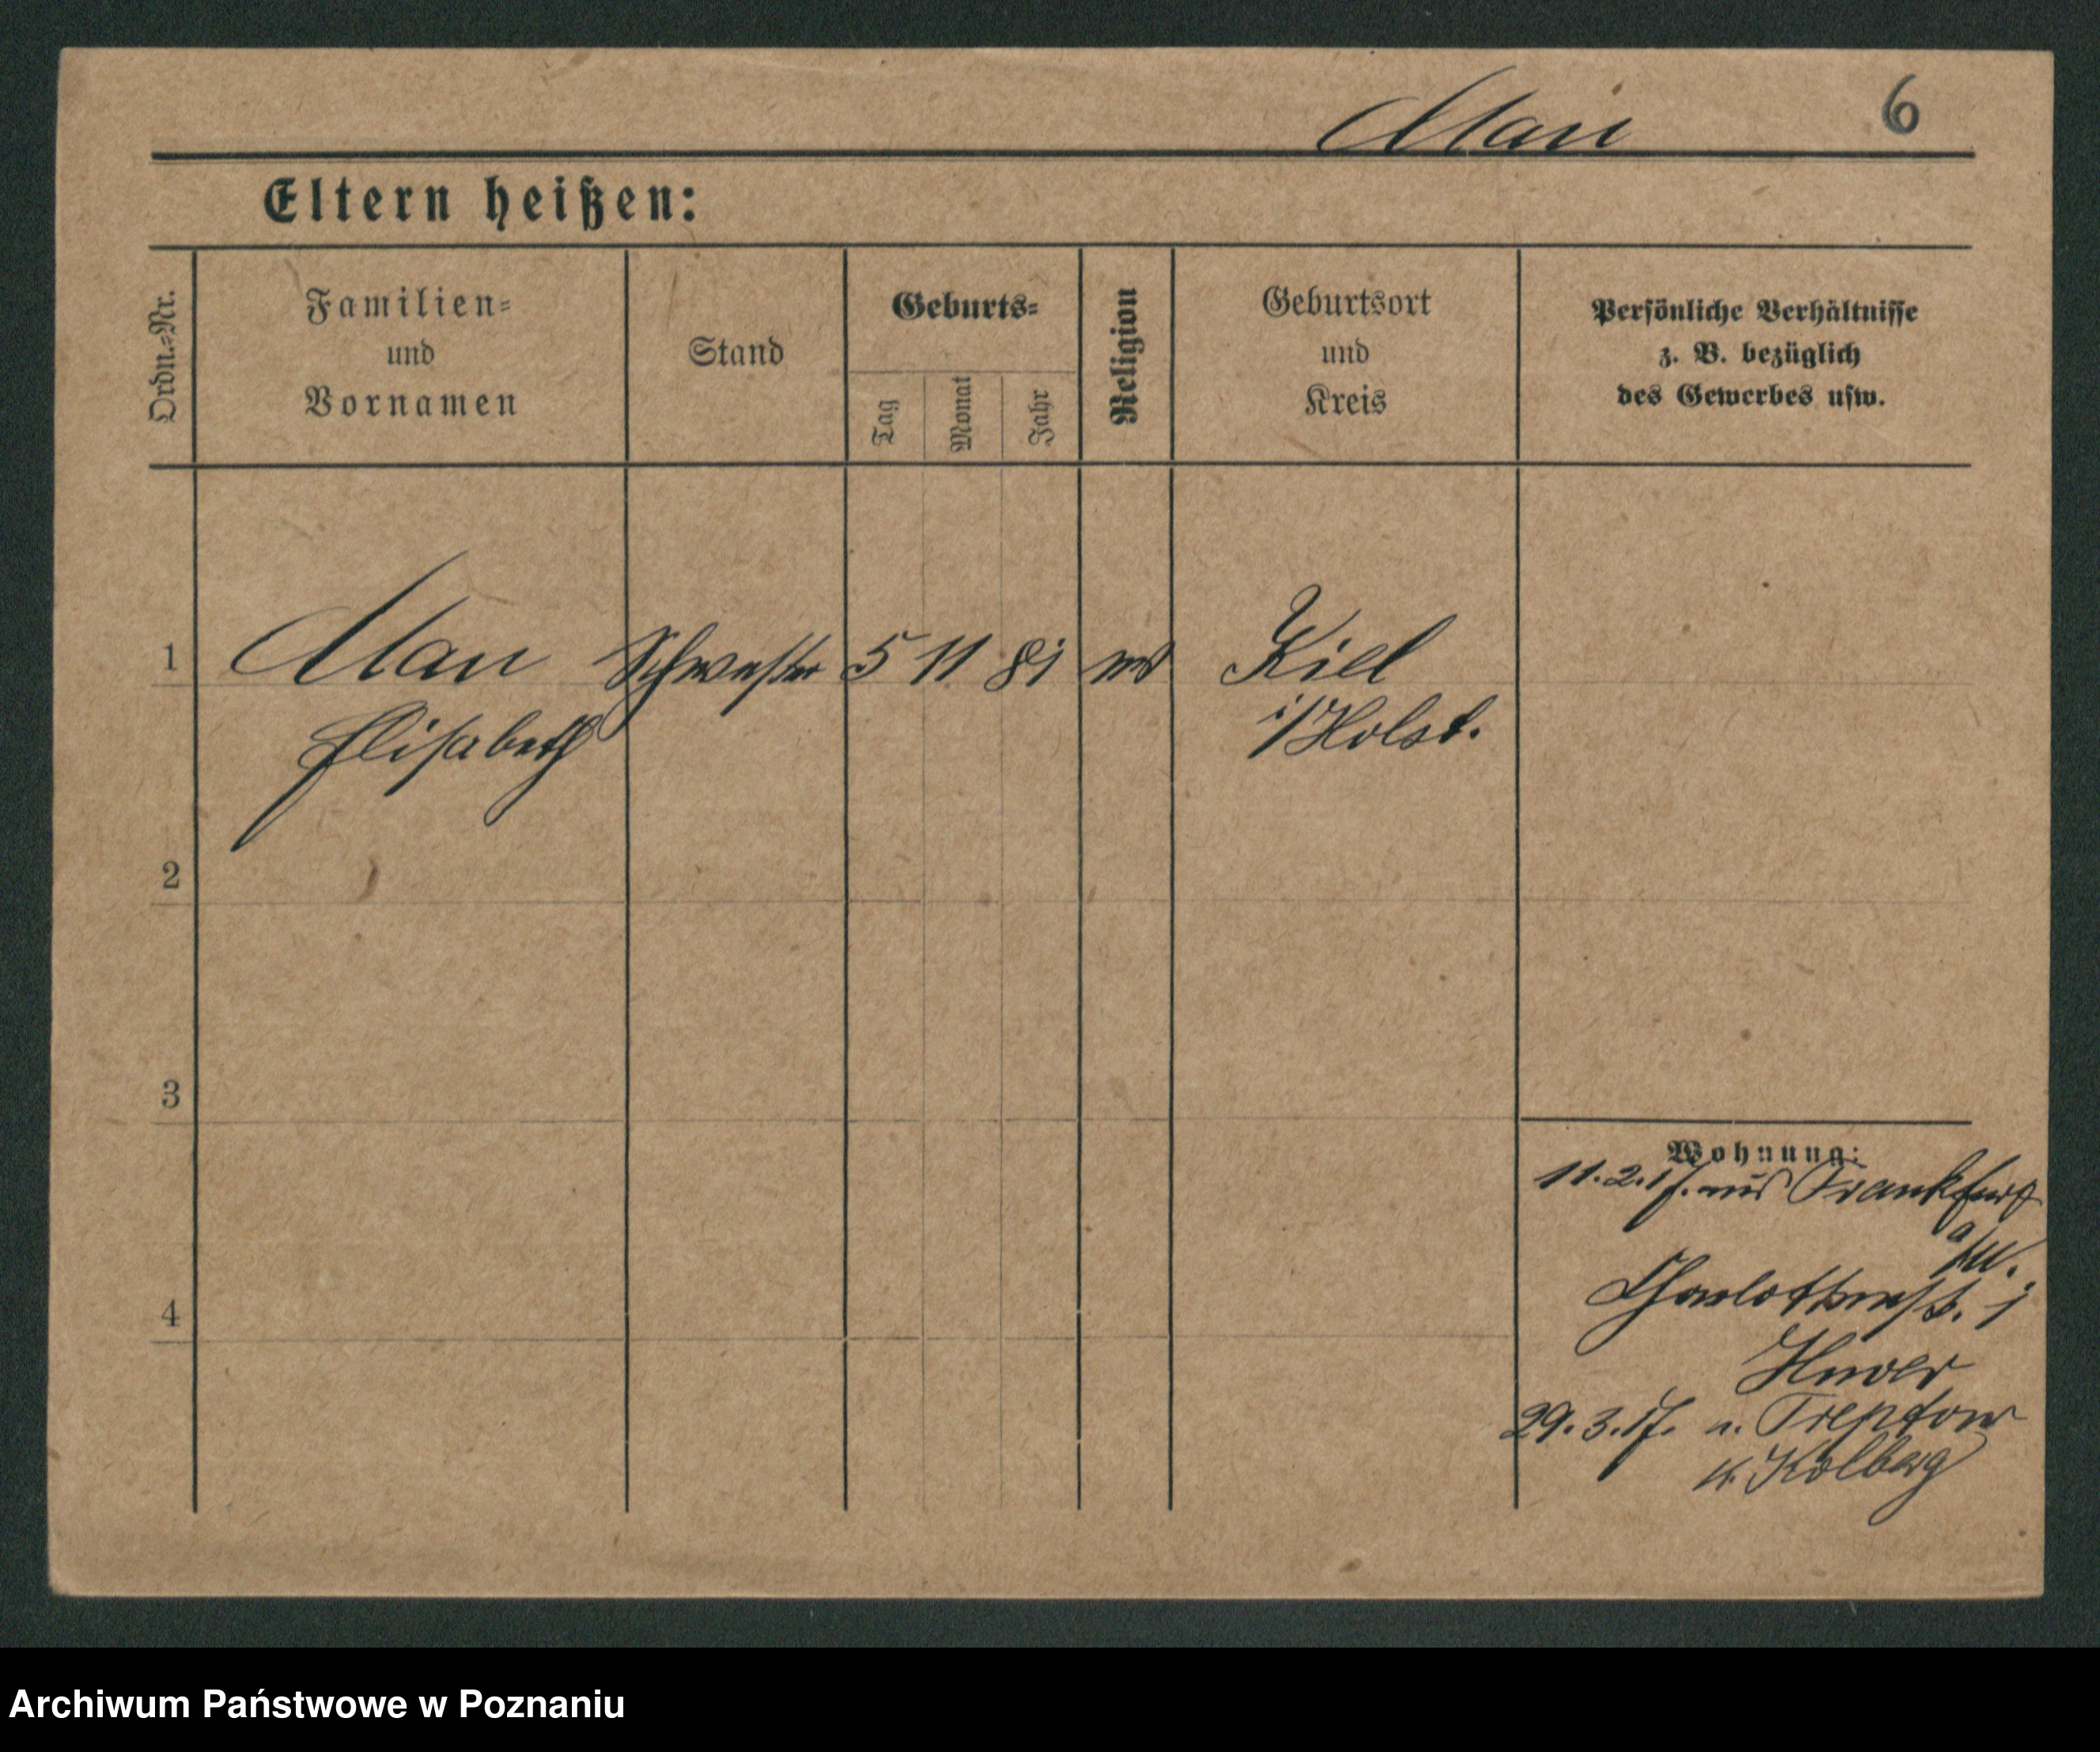 Mau
6
Eltern heißen:
Ordn.=Nr.
Familien=
und
Vornamen
Stand
Geburts=
Tag
Monat
Jahr
Religion
Geburtsort
und
Kreis
Persönliche Verhältnisse
z. B. bezüglich
des Gewerbes usw.
1
Mau
Schwester
5
11
81
Kiel
Elisabeth
i/Holst.
2
3
4
Wohnung:
11.2.17. aus Frankfurt
a/M.
Charlottenst. 1
29.3.17. n. Treptow
K. Kolberg
Archiwum Państwowe w Poznaniu